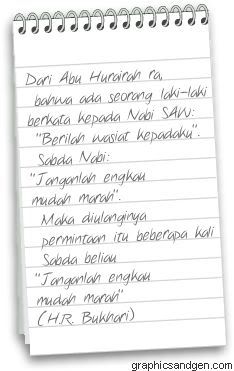 Dari Abu Hurairah ra,
bahwa ada seorang laki-laki
berkata kepada Nabi SAW:
"Berilah wasiat kepadaku".
Sabda Nabi:
"Janganlah engkau
mudah marah".
Maka diulanginya
permintaan itu beberapa kali
Sabda beliau
"Janganlah engkau
mudah marah"
(H.R. Bukhari)
graphicsandgen.com